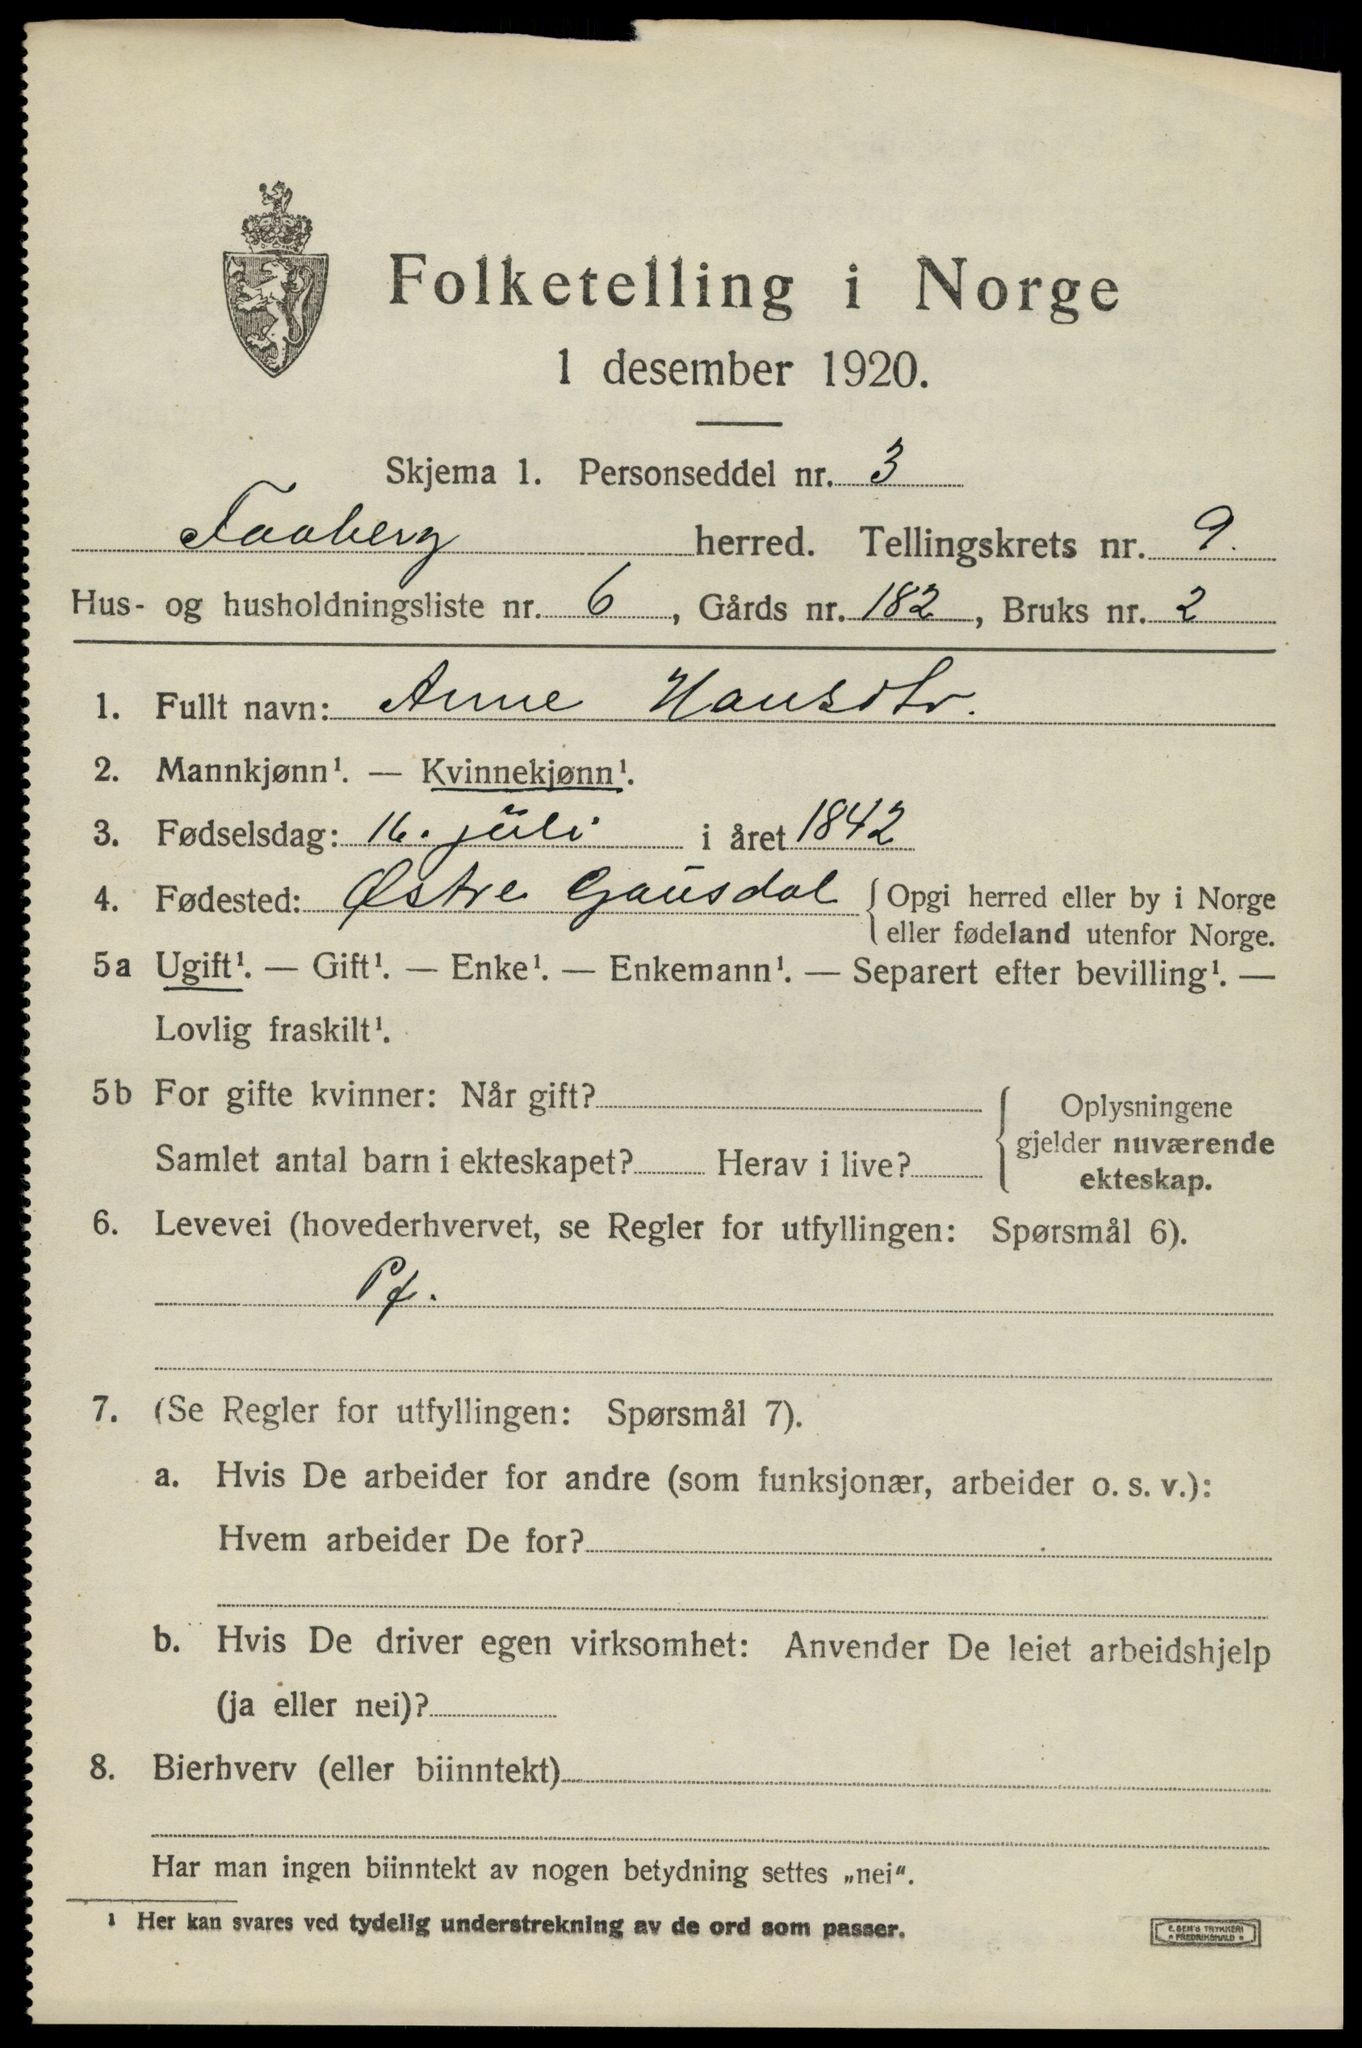 Folketelling i Norge
1 desember 1920.
Skjema 1. Personseddel nr. 3
Faaberg herred. Tellingskrets nr. 9.
Hus- og husholdningsliste nr. 6, Gårds nr. 182, Bruks nr. 2
1. Fullt navn: Anne Hansdtr.
2. Mannkjønn¹. — Kvinnekjønn¹.
3. Fødselsdag: 16. juli i året 1842
4. Fødested: Østre Gausdal { Opgi herred eller by i Norge
eller fødeland utenfor Norge.
5a Ugift¹. — Gift¹. — Enke¹. — Enkemann¹. — Separert efter bevilling¹. —
Lovlig fraskilt¹.
5b For gifte kvinner: Når gift?
Samlet antal barn i ekteskapet? Herav i live?
Oplysningene
gjelder nuværende
ekteskap.
6. Levevei (hovederhvervet, se Regler for utfyllingen: Spørsmål 6).
Pf.
7. (Se Regler for utfyllingen: Spørsmål 7).
a. Hvis De arbeider for andre (som funksjonær, arbeider o. s. v.):
Hvem arbeider De for?
b. Hvis De driver egen virksomhet: Anvender De leiet arbeidshjelp
(ja eller nei)?
8. Bierhverv (eller biinntekt)
Har man ingen biinntekt av nogen betydning settes „nei“.
¹ Her kan svares ved tydelig understrekning av de ord som passer.
E. SEM'S TRYKKERI
FREDRIKSHALD